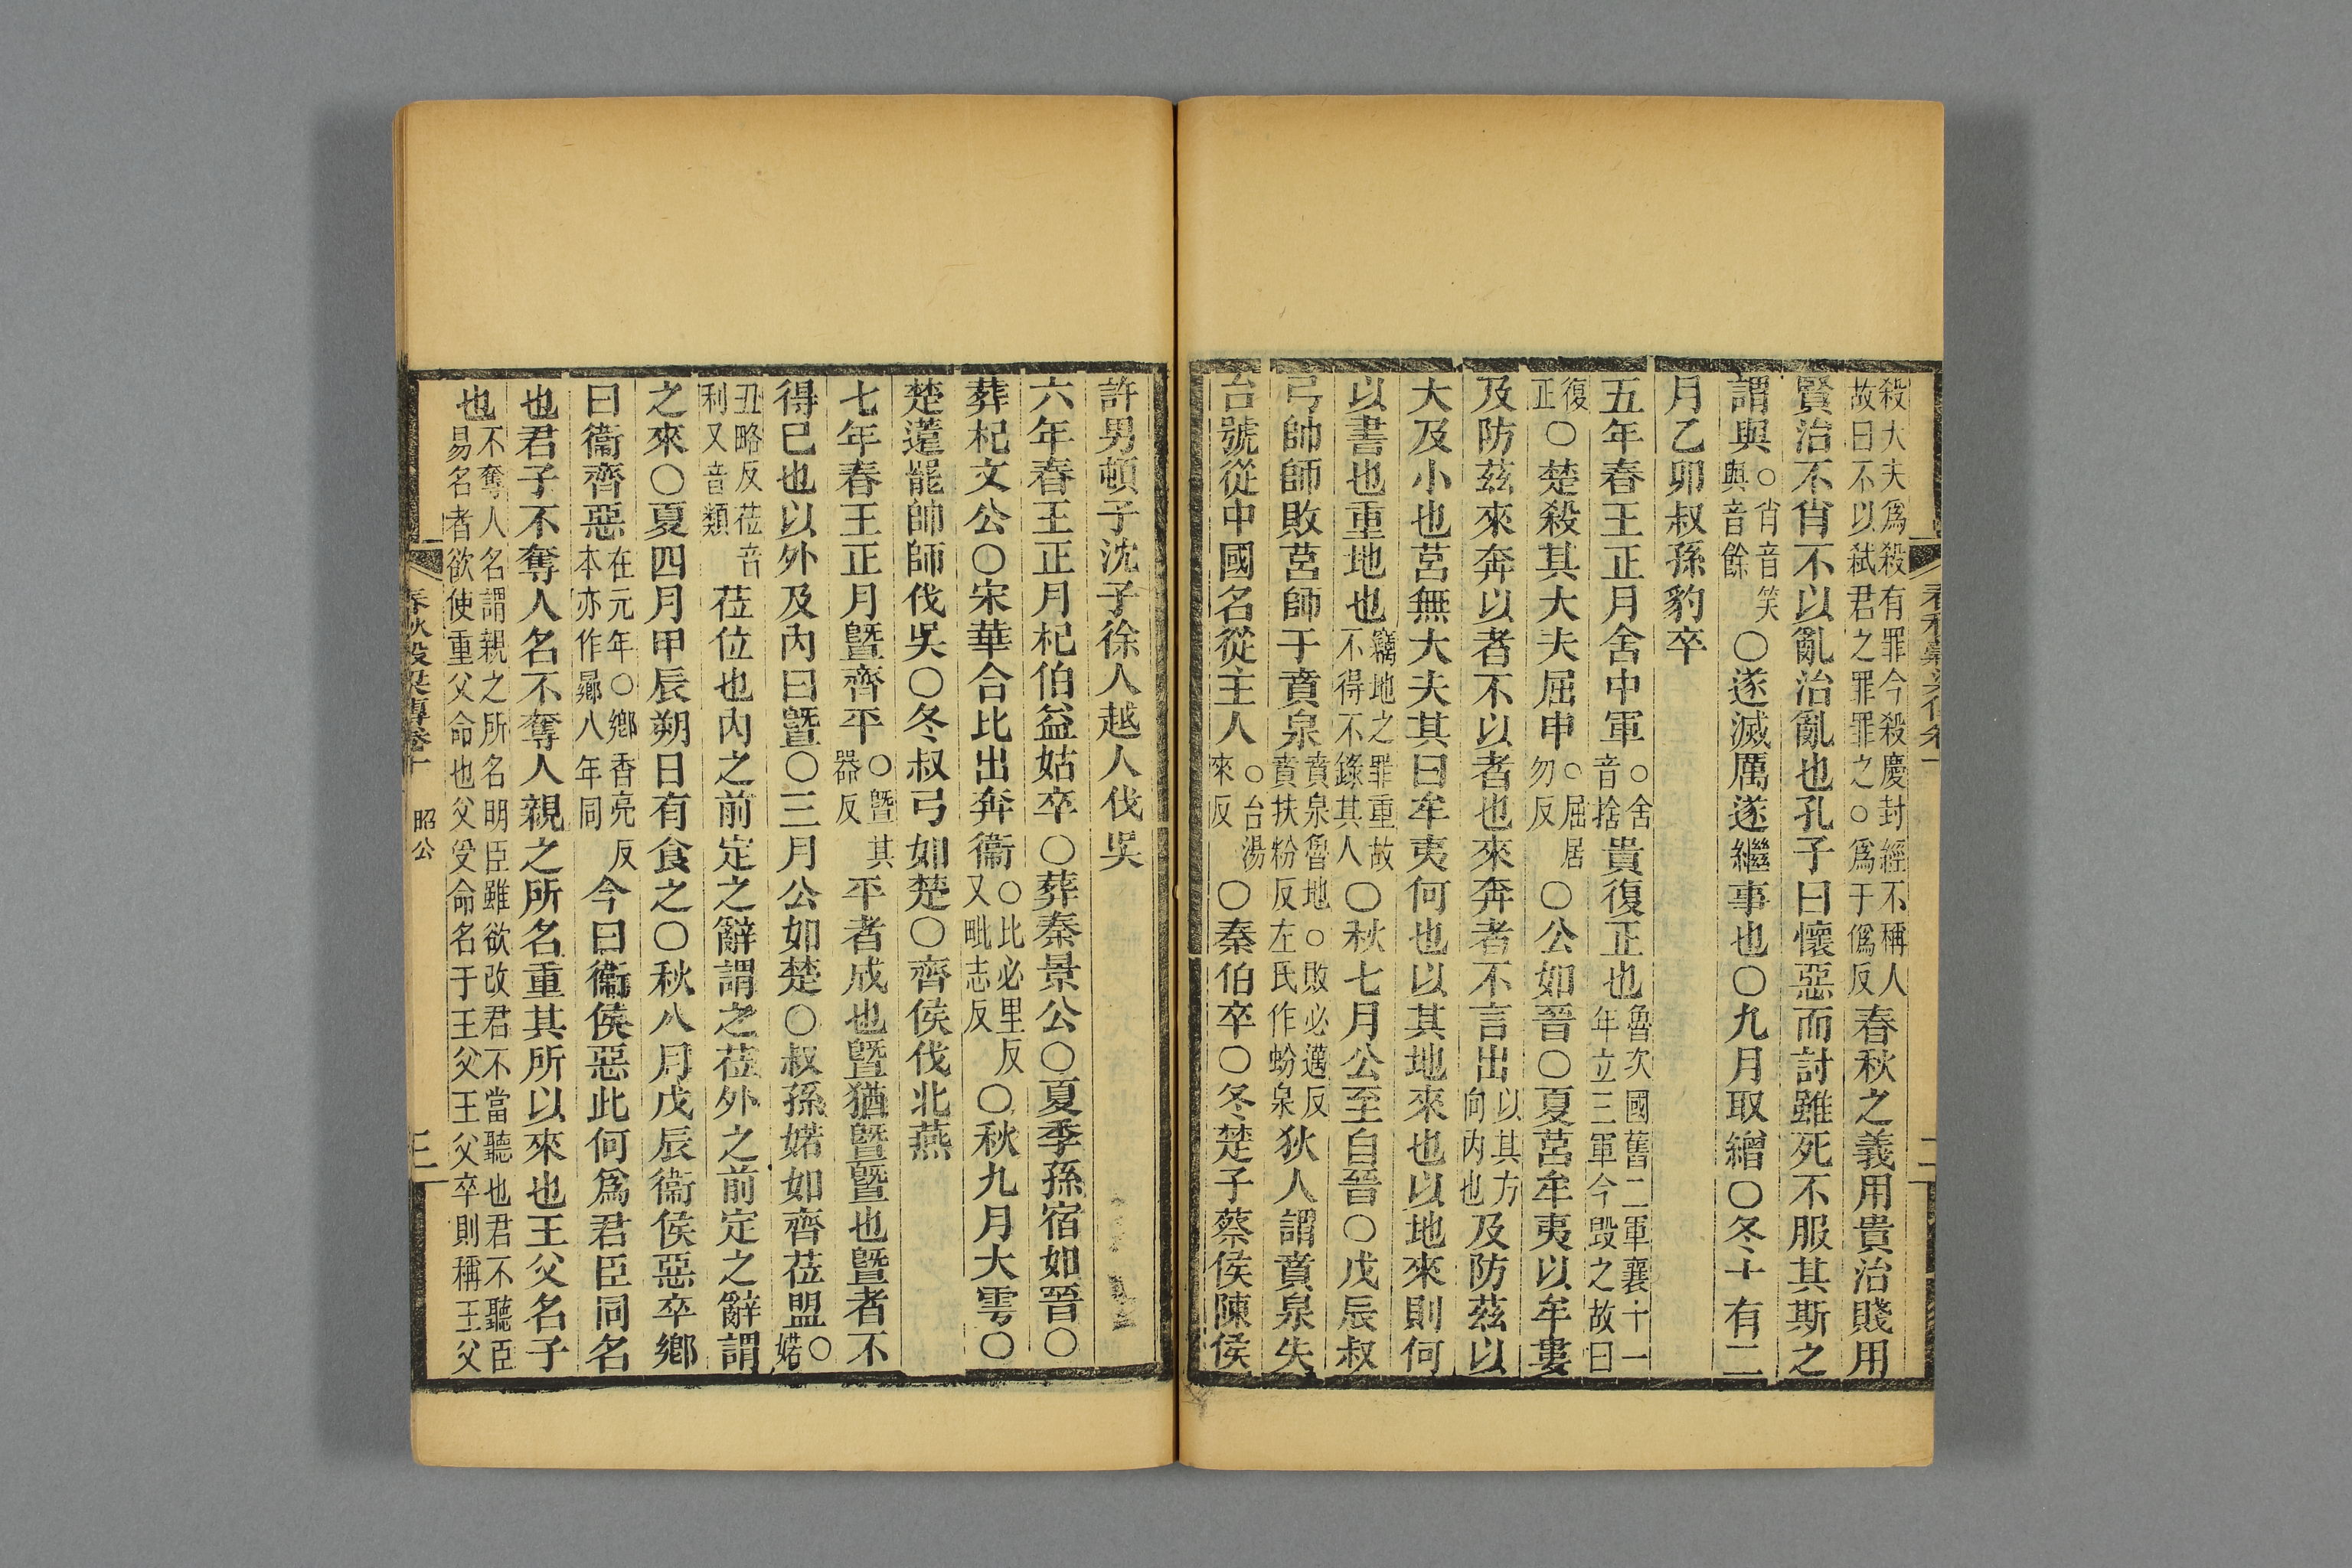 殺大夫爲殺有罪今殺慶封經不稱人
故曰不以弒君之罪罪之○爲于僞反
春秋之義用貴治賤用
賢治不肖不以亂治亂也孔子曰懷惡而討雖死不服其斯之
謂與○肖音笑與音餘○遂滅厲遂繼事也○九月取繒○冬十有二
月乙卯叔孫豹卒
五年春王正月舍中軍○舍音捨貴復正也魯次國舊二軍襄十一年立三軍今毀之故曰
復正○楚殺其大夫屈申○屈居勿反○公如晉○夏莒牟夷以牟婁
及防茲來奔以者不以者也來奔者不言出以其方向內也及防茲以
大及小也莒無大夫其曰牟夷何也以其地來也以地來則何
以書也重地也竊地之罪重故不得不錄其人○秋七月公至自晉○戊辰叔
弓帥師敗莒師于賁泉賁泉魯地○敗必邁反賁扶粉反左氏作蚡泉狄人謂賁泉失
台號從中國名從主人○台湯來反○秦伯卒○冬楚子蔡侯陳侯
許男頓子沈子徐人越人伐吳
六年春王正月杞伯益姑卒○葬秦景公○夏季孫宿如晉○
葬杞文公○宋華合比出奔衞○比必里反又毗志反○秋九月大雩○
楚薳罷帥師伐吳○冬叔弓如楚○齊侯伐北燕
七年春王正月曁齊平○曁其器反平者成也曁猶曁曁也曁者不
得已也以外及內曰曁○三月公如楚○叔孫婼如齊莅盟○婼
丑略反莅音利又音類莅位也內之前定之辭謂之莅外之前定之辭謂
之來○夏四月甲辰朔日有食之○秋八月戊辰衞侯惡卒鄉
曰衞齊惡在元年○鄉香亮反本亦作曏八年同今曰衞侯惡此何爲君臣同名
也君子不奪人名不奪人親之所名重其所以來也王父名子
也不奪人名謂親之所名明臣雖欲改君不當聽也君不聽臣易名者欲使重父命也父受命名于王父王父卒則稱王父
春秋穀梁傳卷十 昭公 三